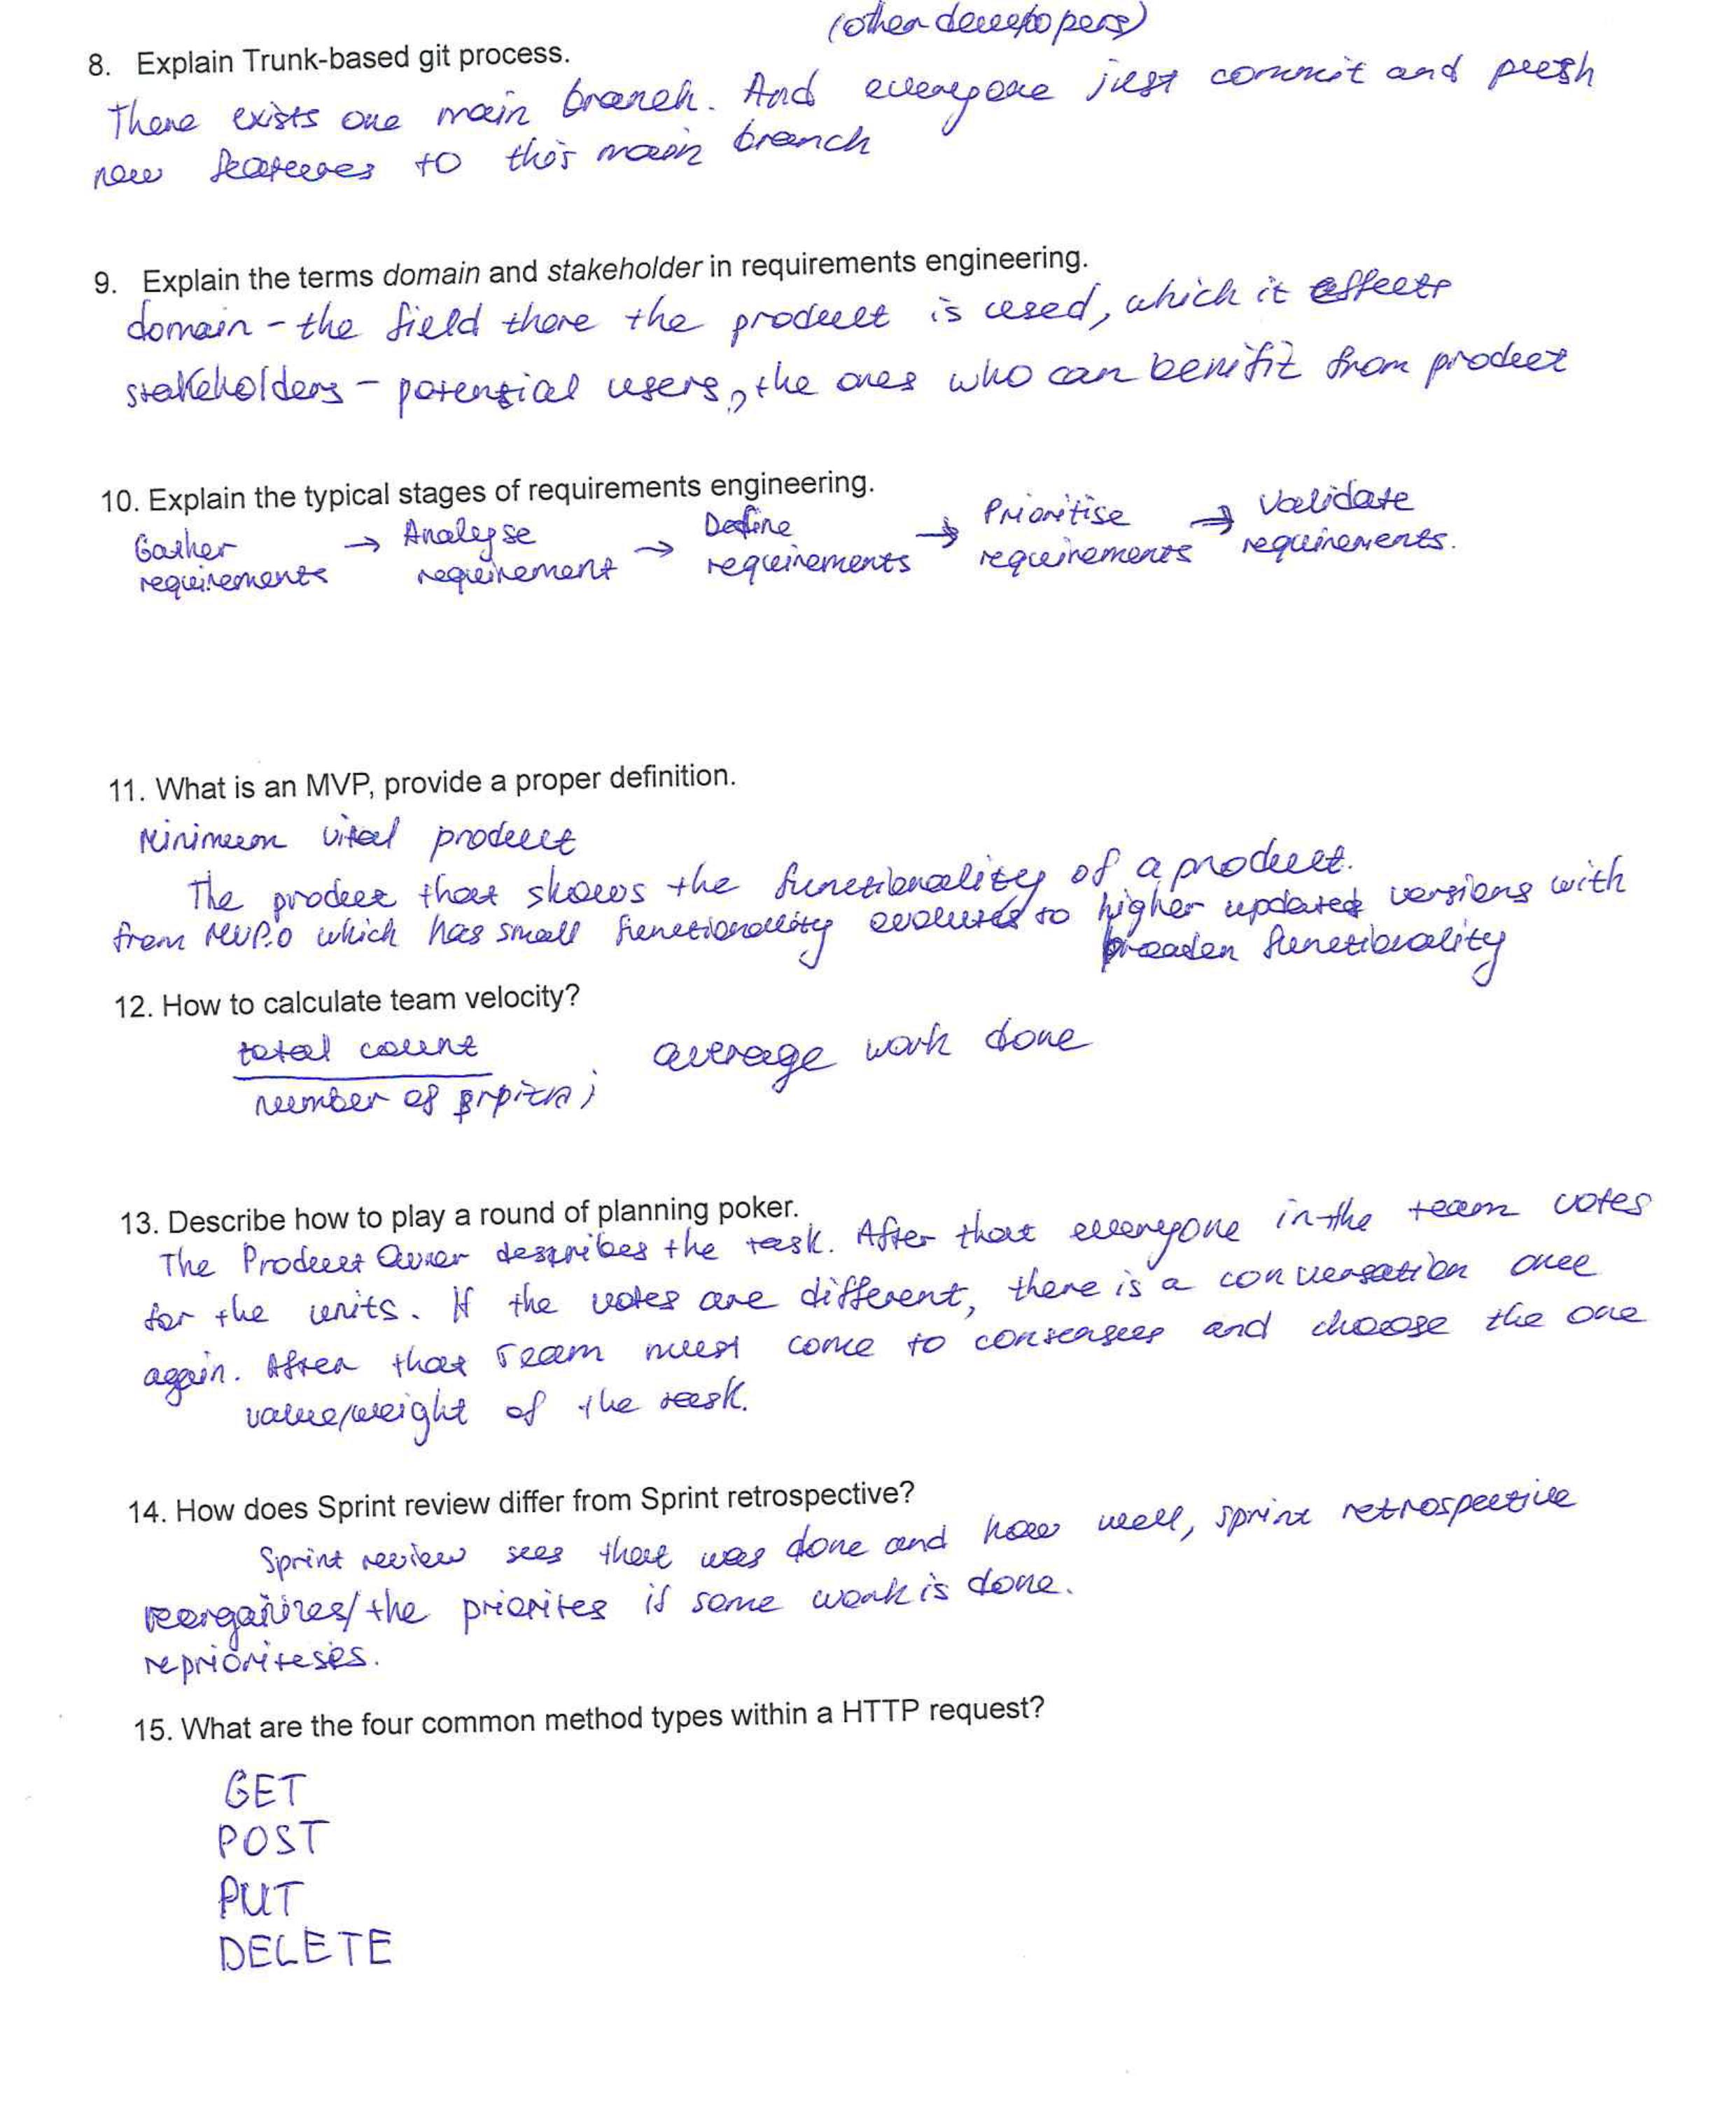 (other developers)
8. Explain Trunk-based git process.
There exists one main branch. And everyone just commit and push
new features to this main branch
9. Explain the terms domain and stakeholder in requirements engineering.
domain - the field there the product is used, which it affects
stakeholders - potential users, the ones who can benifit from product
10. Explain the typical stages of requirements engineering.
Gather requirements → Analyse requirement → Define requirements → Prioritise requirements → Validate requirements.
11. What is an MVP, provide a proper definition.
Minimum vital product
The product that shows the functionality of a product.
from MVP.0 which has small functionality evolutes to higher updated versions with
broaden functionality
12. How to calculate team velocity?
total count
number of ; average work done
13. Describe how to play a round of planning poker.
The Product Owner describes the task. After that everyone in the team votes
for the units. If the votes are different, there is a conversation once
again. After that team must come to consensus and choose the one
value/weight of the task.
14. How does Sprint review differ from Sprint retrospective?
Sprint review sees that was done and how well, sprint retrospective
reorganizes/the priorites if some work is done.
reprioriteses.
15. What are the four common method types within a HTTP request?
GET
POST
PUT
DELETE